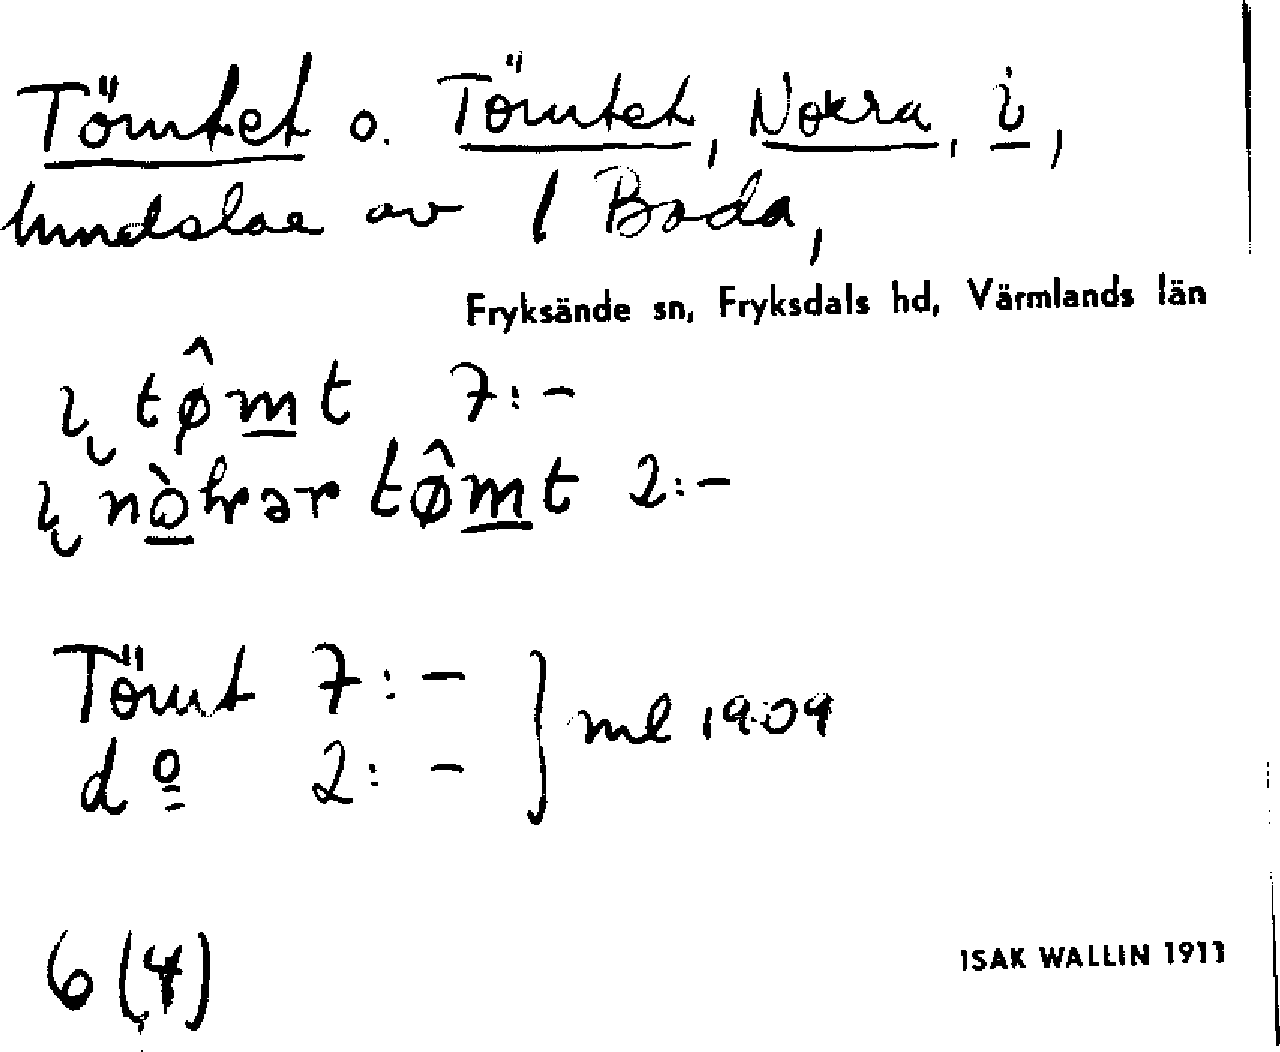 Tömtet o. Tömtet, Norra, i,
hmdslae av 1 Boda,
Fryksände sn, Fryksdals hd, Värmlands län
ı̨ tø̂m̲t 7:-
ı̨ nò̲rər tø̂m̲t 2:-
Tömt 7:- } ml 1909
dº 2:-
6 (4)
ISAK WALLIN 1911